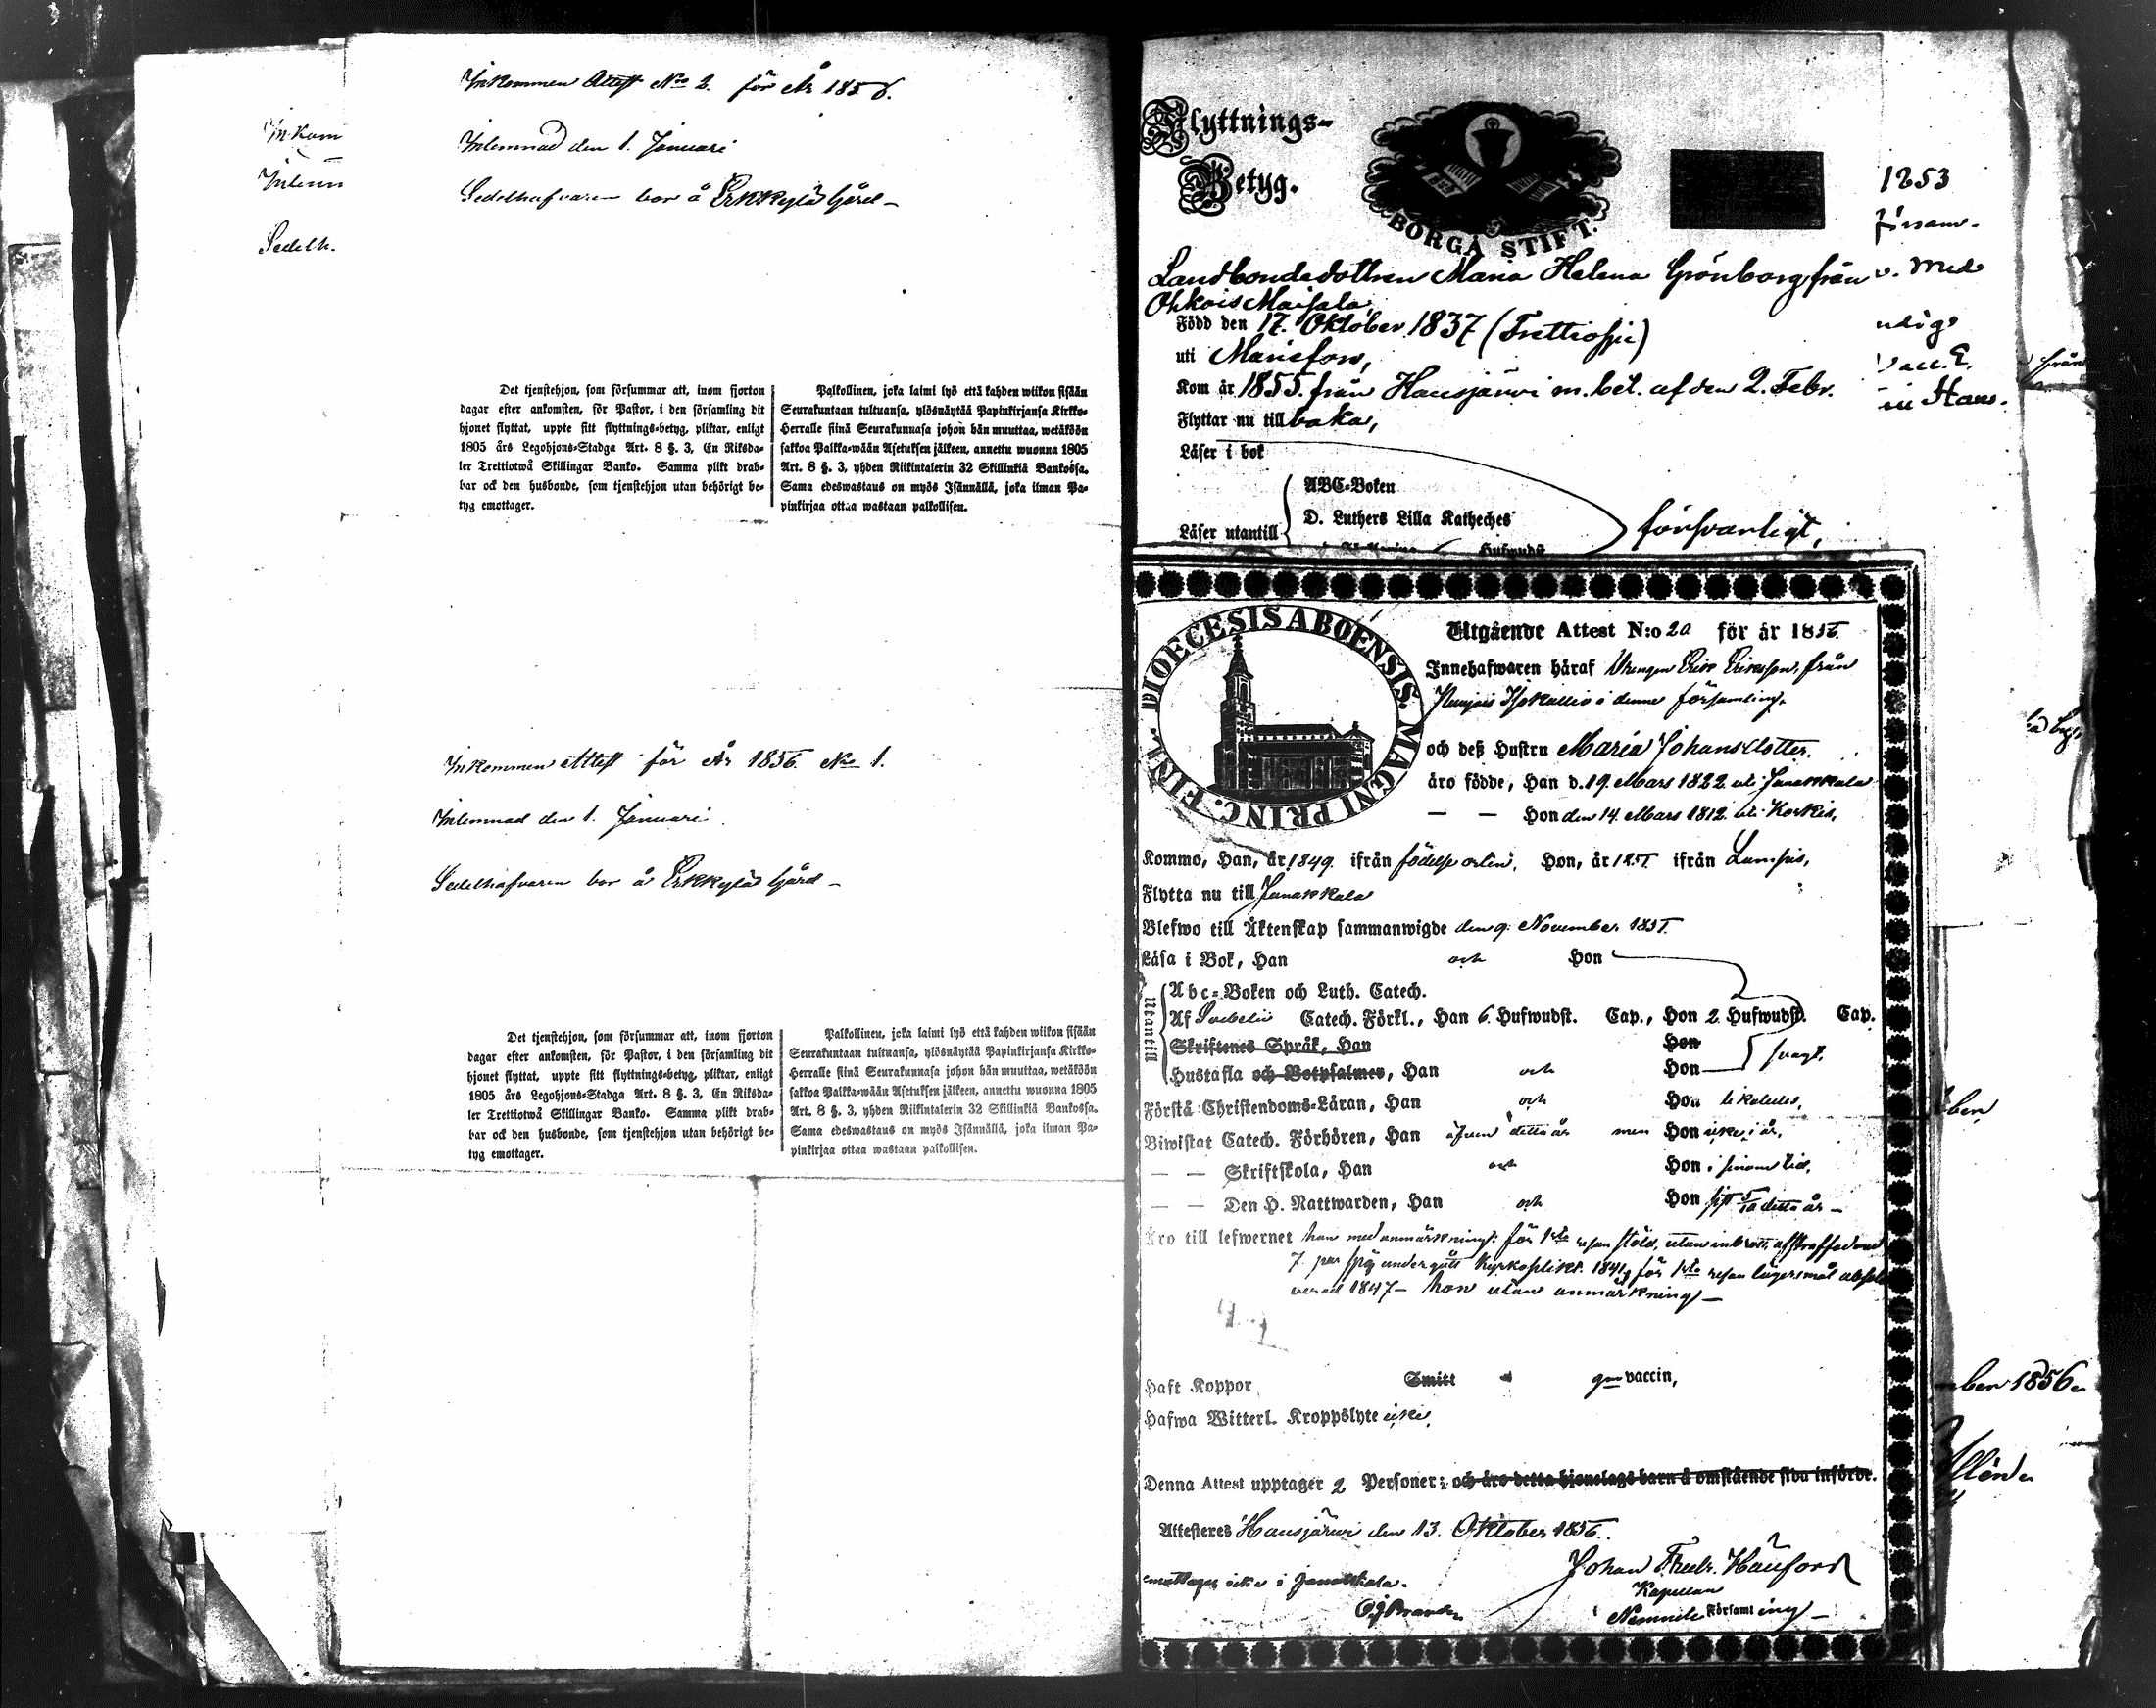 Inkommen Attest No 2. för År 1856.
Inlemnad den 1. Januari
Sedelhafvaren bor å Erkkylä Gård –
Inkom
Inlem
Sedelh.
Det tjenstehjon, som försummar att, inom fjorton
dagar efter ankomsten, för Pastor, i den församling dit
hjonet flyttat, uppte sitt flyttnings-betyg, pliktar, enligt
1805 års Legohjons-Stadga Art. 8 §. 3, En Riksda-
ler Trettiotwå Skillingar Banko. Samma plikt drab-
bar ock den husbonde, som tjenstehjon utan behörigt be-
tyg emottager.
Palkollinen, joka laimi lyö että kahden wiikon sisään
Seurakuntaan tultuansa, ylösnäytää Papinkirjansa Kirkko-
Herralle siinä Seurakunnasa johon hän muuttaa, wetäköön
sakkoa Palkka-wään Asetuksen jälkeen, annettu wuonna 1805
Art. 8 §. 3, yhden Riikintalerin 32 Skillinkiä Bankossa.
Sama edeswastaus on myös Isännällä, joka ilman Pa-
pinkirjaa ottaa wastaan palkollisen.
Inkommen Attest för År 1856 No 1.
Inlemnad den 1. Januari.
Sedelhafvaren bor å Erkkylä Gård –
Det tjenstehjon, som försummar att, inom fjorton
dagar efter ankomsten, för Pastor, i den församling dit
hjonet flyttat, uppte sitt flyttnings-betyg, pliktar, enligt
1805 års Legohjons-Stadga Art. 8 §. 3, En Riksda-
ler Trettiotwå Skillingar Banko. Samma plikt drab-
bar ock den husbonde, som tjenstehjon utan behörigt be-
tyg emottager.
Palkollinen, joka laimi lyö että kahden wiikon sisään
Seurakuntaan tultuansa, ylösnäytää Papinkirjansa Kirkko-
Herralle siinä Seurakunnasa johon hän muuttaa, wetäköön
sakkoa Palkka-wään Asetuksen jälkeen, annettu wuonna 1805
Art. 8 §. 3, yhden Riikintalerin 32 Skillinkiä Bankossa.
Sama edeswastaus on myös Isännällä, joka ilman Pa-
pinkirjaa ottaa wastaan palkollisen.
Flyttnings-
Betyg.
BORGÅ STIFT.
Landbondedottren Maria Helena Grönborg från
Ohkois Maisala,
Född den 17. Oktober 1837 (Trettiosju)
uti Mariefors,
Kom år 1855 från Hausjärvi m. bet. af den 2. Febr.
Flyttar nu tillbaka,
Läser i bok
Läser utantill
ABC-Boken
D. Luthers Lilla Katheches
försvarligt,
1853
försam-
v. med
udigs
vacc.
in Haus-
från
DIOECESIS ABOENSIS. MAGNI PRINC. FINL.
Utgående Attest N:o 20 för år 1856
Innehafwaren häraf Drengen Erik Eriksson, från
i denna församling.
och deß Hustru Maria Johansdotter.
äro födde, Han d. 19. Mars 1822 uti Janakkala
— — Hon den 14. Mars 1812. uti Korkis,
Kommo, Han, år 1849. ifrån födelse orten, Hon, år 1851 ifrån Lampis,
Flytta nu till Janakkala
Blefwo till Äktenskap sammanwigde den 9. November 1851.
Läsa i Bok, Han och Hon
Utantill
Abc-Boken och Luth. Catech.
Af Svebelii Catech. Förkl., Han 6. Hufwudst. Cap., Hon 2. Hufwudst. Cap.
Skriftenes Språk, Han Hon
Hustafla och Botpsalmer, Han och Hon svagt.
Förstå Christendoms-Läran, Han och Hon likaledes,
Biwistat Catech. Förhören, Han äfven detta år men Hon icke i år,
— — Skriftskola, Han och Hon i sinom tid,
— — Den H. Nattwarden, Han och Hon sist 5/10 detta år –
Äro till lefwernet han med anmärkning: för 1sta resan stöld, utan inbrott, afstraffad med
7 par spö undergått kyrkoplikt 1841, för 1sta resan lägersmål absol-
verad 1847 – hon utan anmärkning –
Haft Koppor Smitt gm vaccin,
Hafwa Witterl. Kroppslyte icke,
Denna Attest upptager 2 Personer; och äro detta hjonelags barn å omstående sida införde.
Attesteres Hausjärvi den 13. Oktober 1856.
emottages icke i Janakkala.
Johan Fredr.
Kapellan
i Nämnde Församling –
ber
ber 1856